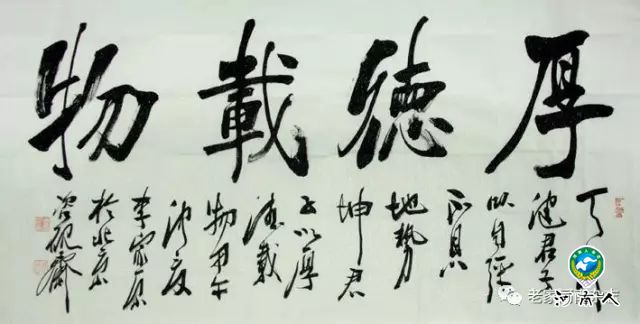 厚德載物
天行
健君子
以自强
不息
地勢
坤君
子以厚
德載
物甲午
李家原
於北京
河南人